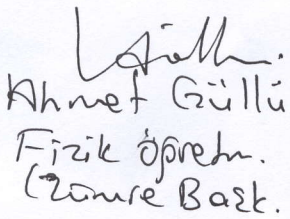 Ahmet Güllü
Fizik öğretm.
(Zümre Başk.